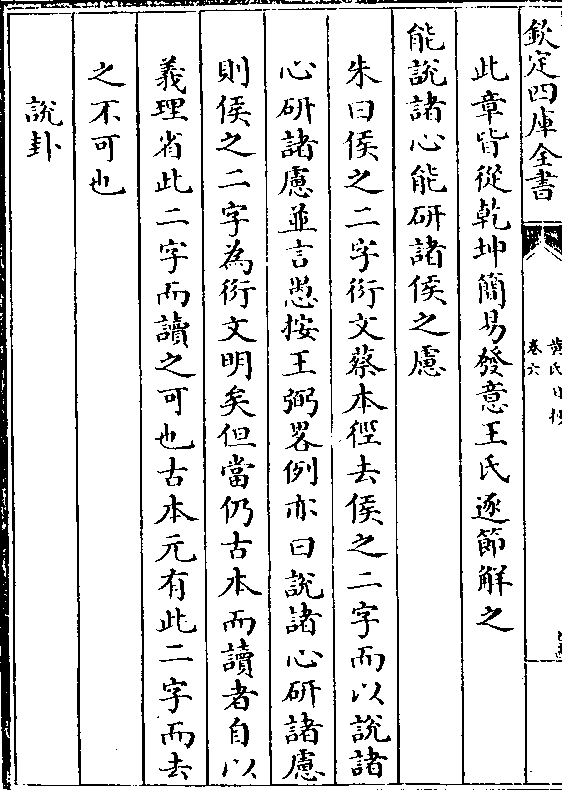 欽定四庫全書
黄氏日抄
卷六
此章皆從乾坤簡易發意王氏逐節解之
能說諸心能研諸侯之慮
朱曰侯之二字衍文蔡本徑去侯之二字而以說諸
心研諸慮並言愚按王弼畧例亦曰說諸心研諸慮
則侯之二字為衍文明矣但當仍古本而讀者自以
義理省此二字而讀之可也古本元有此二字而去
之不可也
說卦